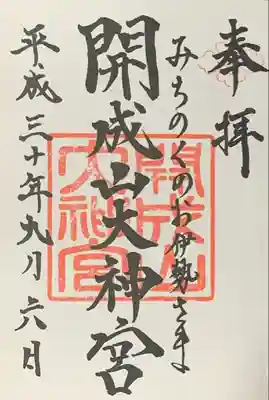 奉拝
みちのくのお伊勢さま
開成山大神宮
開成山大神宮
平成三十年九月六日